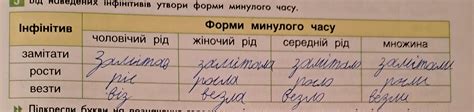 5 Від наведених інфінітивів утвори форми минулого часу.
Інфінітив Форми минулого часу
чоловічий рід жіночий рід середній рід множина
замітати замітав замітала замітало замітали
рости ріс росла росло росли
везти віз везла везло везли
Підкресли букви на позначення